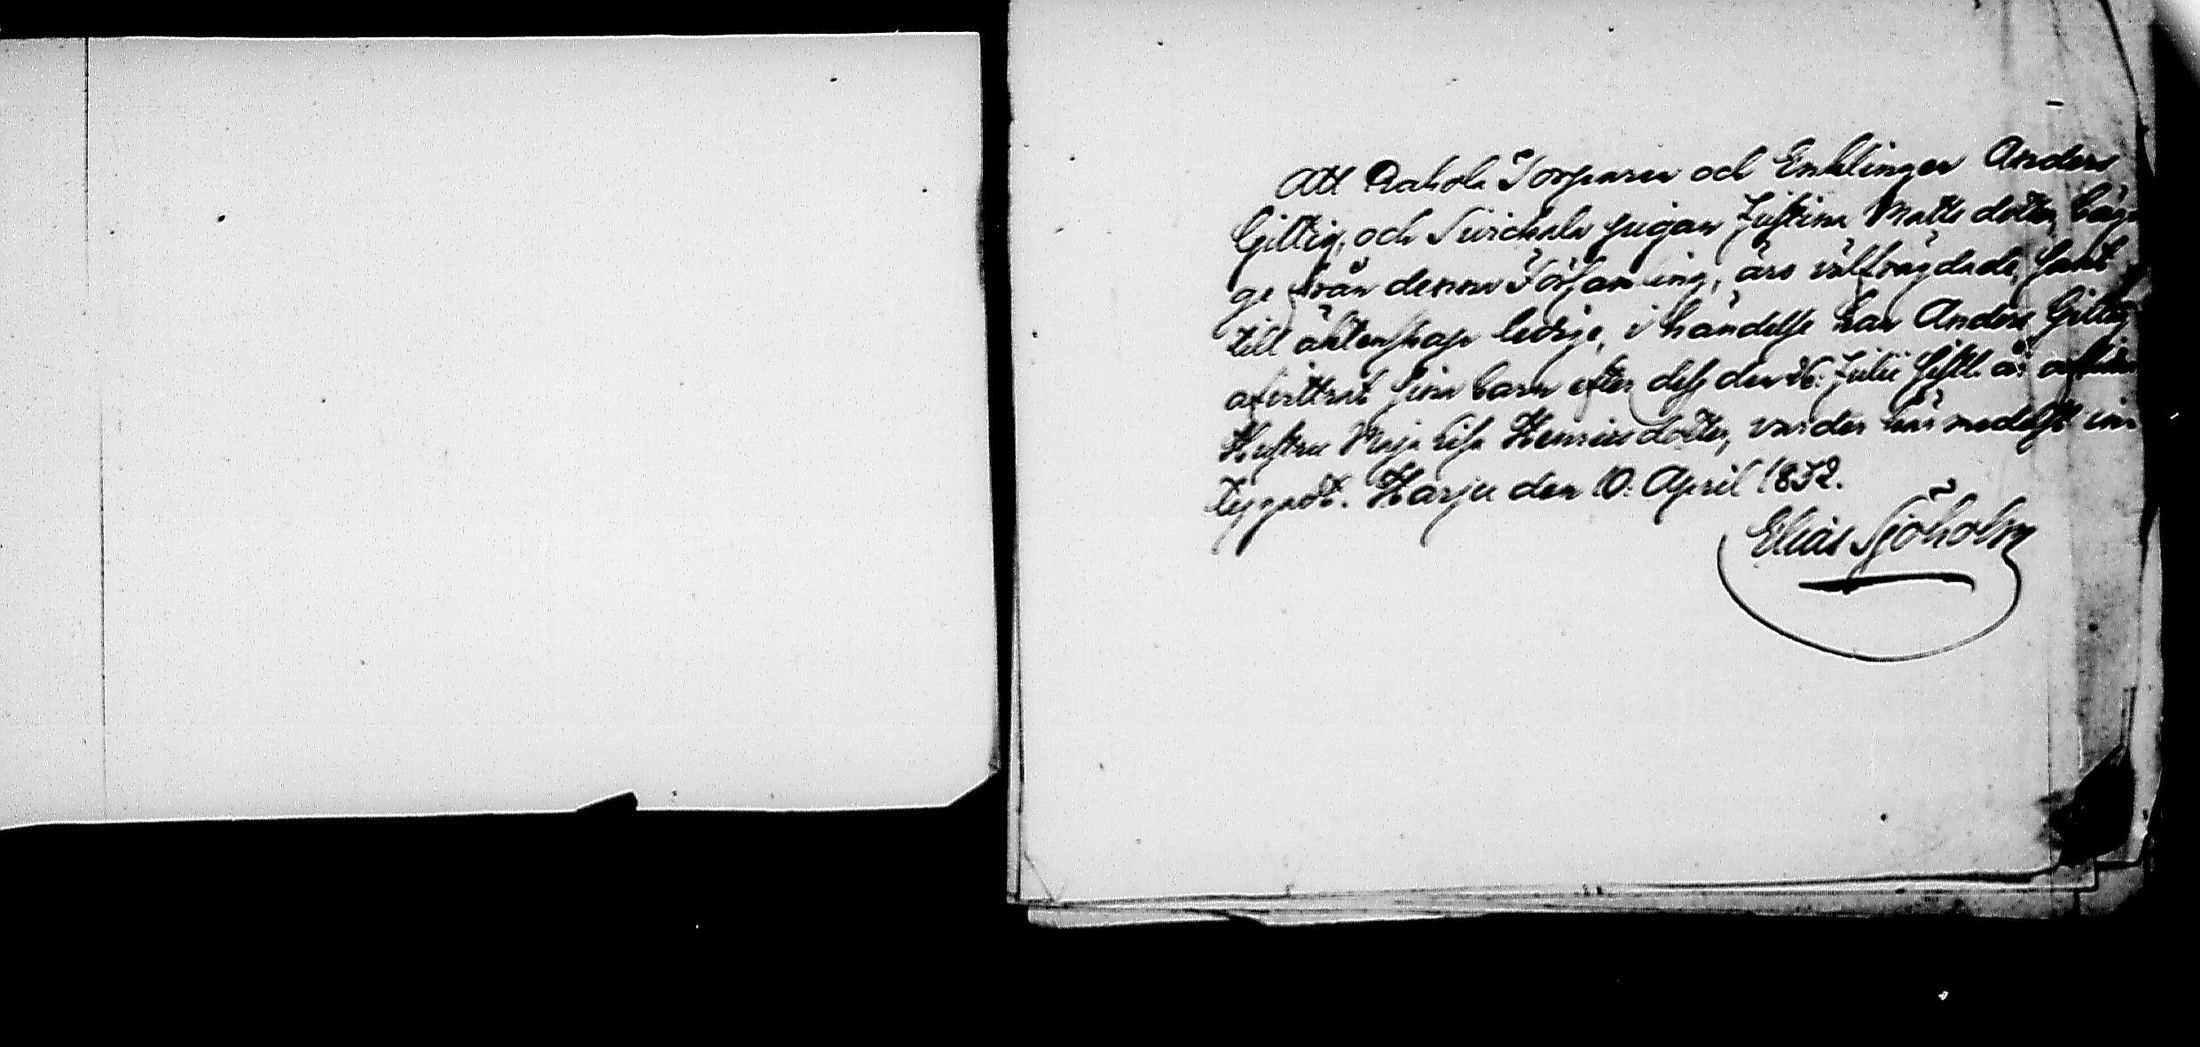 Att Rahola Torparen och Enklingen Anders
Giltig, och Sirickala pigan Justina Matts dotter, bäg-
ge från denna Församling, äro välfrägdade, samt
till äktenskap ledige, i händelse har Anders Giltig
afvittrat sina barn efter dess den 26. Julii sistl. år aflidne
Hustru Maja Lisa Henricsdotter, varder härmedelst in-
tygadt. Harju den 10. April 1832.
Elias Sjöholm